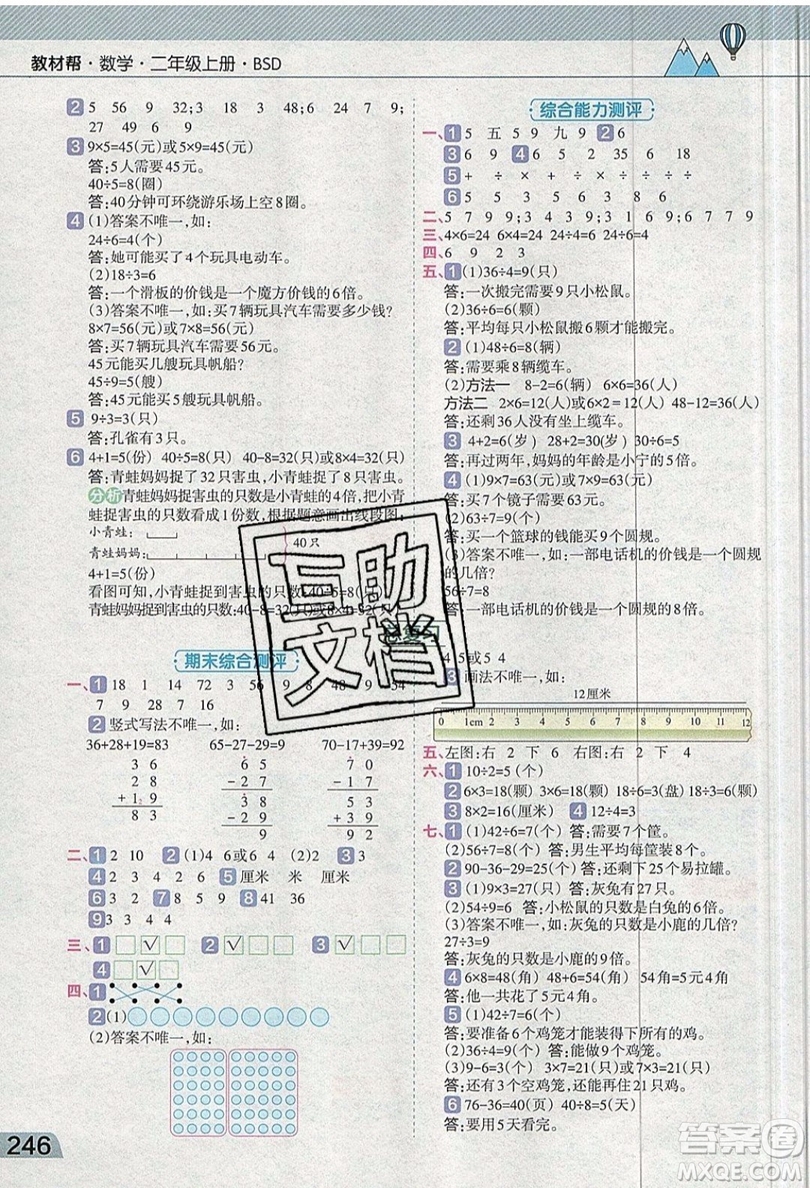 教材帮·数学·二年级上册·BSD
2 5 56 9 32;3 18 3 48;6 24 7 9;
27 49 9 66
3 9×5=45(元)或5×9=45(元)
答:5人需要45元。
40÷5=8(圈)
答:40分钟可环绕游乐场上空8圈。
4 (1)答案不唯一,如:
24÷6=4(个)
答:她可能买了4个玩具电动车。
(2)18÷3=6
答:一个滑板的价钱是一个魔方价钱的6倍。
(3)答案不唯一,如:买7辆玩具汽车需要多少钱?
8×7=56(元)或7×8=56(元)
答:买7辆玩具汽车需要56元。
45元能买几艘玩具帆船?
45÷9=5(艘)
答:45元能买5艘玩具帆船。
5 9÷3=3(只)
答:孔雀有3只。
6 4+1=5(份) 40÷5=8(只) 40-8=32(只)或8×4=32(只)
答:青蛙妈妈捉了32只害虫,小青蛙捉了8只害虫。
分析 青蛙妈妈捉害虫的只数是小青蛙的4倍,把小青
蛙捉害虫的只数看成1份数,根据题意画出线段图:
小青蛙:
青蛙妈妈: 40只
4+1=5(份)
看图可知,小青蛙捉到害虫的只数:40÷5=8(只)
青蛙妈妈捉到害虫的只数:40-8=32(只)或8×4=32(只)
期末综合测评
一、1 18 1 14 72 3 56 9 8 9 54
7 9 28 7 16
2 竖式写法不唯一,如:
36+28+19=83 65-27-29=9 70-17+39=92
3 6 6 5 7 0
2 8 - 2 7 - 1 7
+ 1 9 3 8 5 3
8 3 - 2 9 + 3 9
9 9 2
二、1 2 10 2 (1)4 6或6 4 (2)2 3 3
4 2 4 2 4 5 厘米 米 厘米
6 3 2 7 9 8 41 36
9 3 3 4 4
三、1 ✓ 2 ✓ 3 ✓
4 ✓
四、1
2 (1)
(2)答案不唯一,如:
246
综合能力测评
一、1 5 五 5 9 九 9 2 6
3 6 9 4 6 5 2 35 6 18
5 + ÷ - × ÷ ÷ ÷ ÷
6 5 5 6 3 8 6
二、5 7 9 9;3 4 3 9;2 7 9 9
三、4×6=24 6×4=24 24÷4=6 24÷6=4
四、6 9 2 3
五、1 (1)36÷4=9(只)
答:一次搬完需要9只小松鼠。
(2)36÷6=6(颗)
答:平均每只小松鼠搬6颗才能搬完。
2 (1)48÷6=8(辆)
答:需要乘8辆缆车。
(2)方法一 8-2=6(辆) 6×6=36(人)
方法二 2×6=12(人)或6×2=12(人) 48-12=36(人)
答:还剩36人没有坐上缆车。
3 4+2=6(岁) 28+2=30(岁) 30÷6=5
答:再过两年,妈妈的年龄是小宁的5倍。
答:买7个镜子需要63元。
答:买一个篮球的钱能买9个圆规。
(3)答案不唯一,如:一部电话机的价钱是一个圆规
的几倍?
答:一部电话机的价钱是一个圆规的8倍。
4 5或5 4
3 画法不唯一,如:
12厘米
0 1cm 2 3 4 5 6 7 8 9 10 11 12
五、左图:右 2 下 6 右图:右 2 下 4
六、1 10÷2=5(个)
2 6×3=18(颗)或3×6=18(颗) 18÷6=3(盘)或18÷3=6(颗)
3 8×2=16(厘米) 4 12÷4=3
七、1 (1)42÷6=7(个) 答:需要7个筐。
(2)56÷7=8(个) 答:男生平均每筐装8个。
2 90-36-29=25(个) 答:还剩下25个易拉罐。
3 (1)56÷7=8(只) 答:灰兔有8只。
(2)54÷9=6 答:小松鼠的只数是白兔的6倍。
(3)答案不唯一,如:灰兔的只数是小鹿的几倍?
27÷3=9
答:灰兔的只数是小鹿的9倍。
4 6×8=48(角) 48+6=54(角) 54角=5元4角
答:他一共花了5元4角。
5 (1)42÷7=6(个)
答:要准备6个鸡笼才能装得下所有的鸡。
(2)36÷4=9(个) 答:能做9个鸡笼。
(3)9-6=3(个) 3×7=21(只)或7×3=21(只)
答:还能装21只鸡,还有3个空鸡笼。
6 76-36=40(页) 40÷8=5(天)
答:要用5天看完。
互助
文档
答案圈
MXQE.COM